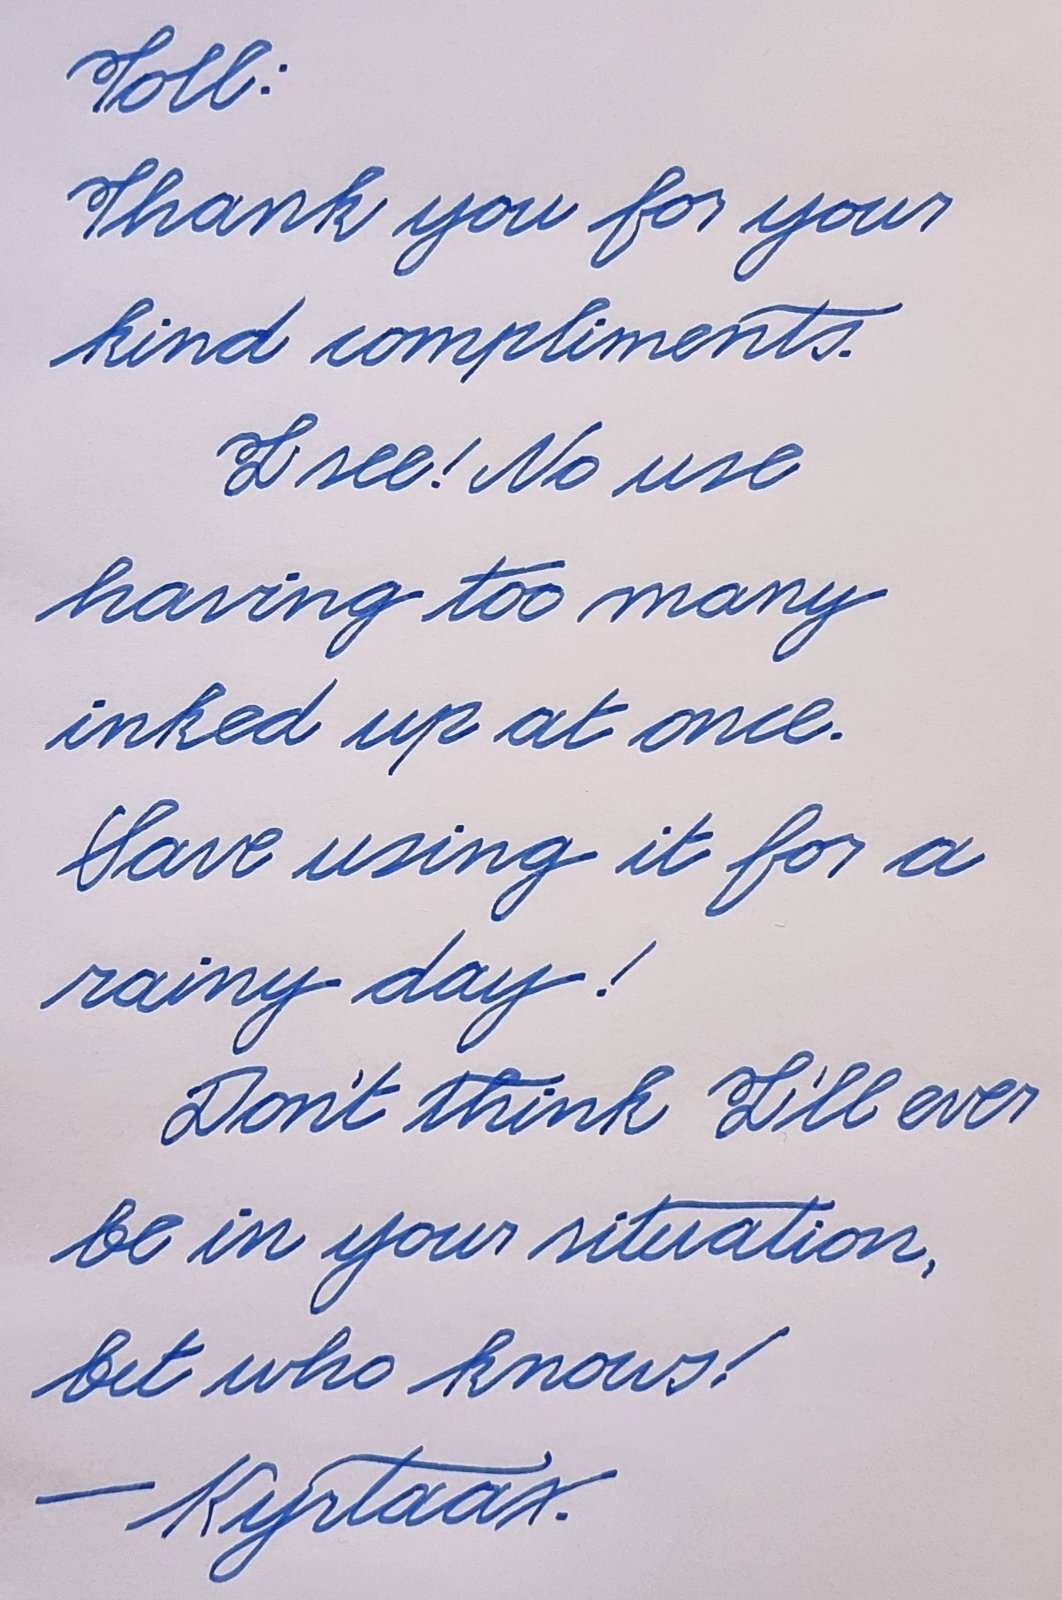 Toll:
Thank you for your
kind compliments.
I see! No use
having too many
inked up at once.
Save using it for a
rainy day!
Don't think I'll ever
be in your situation,
but who knows!
— Kyrtaax.